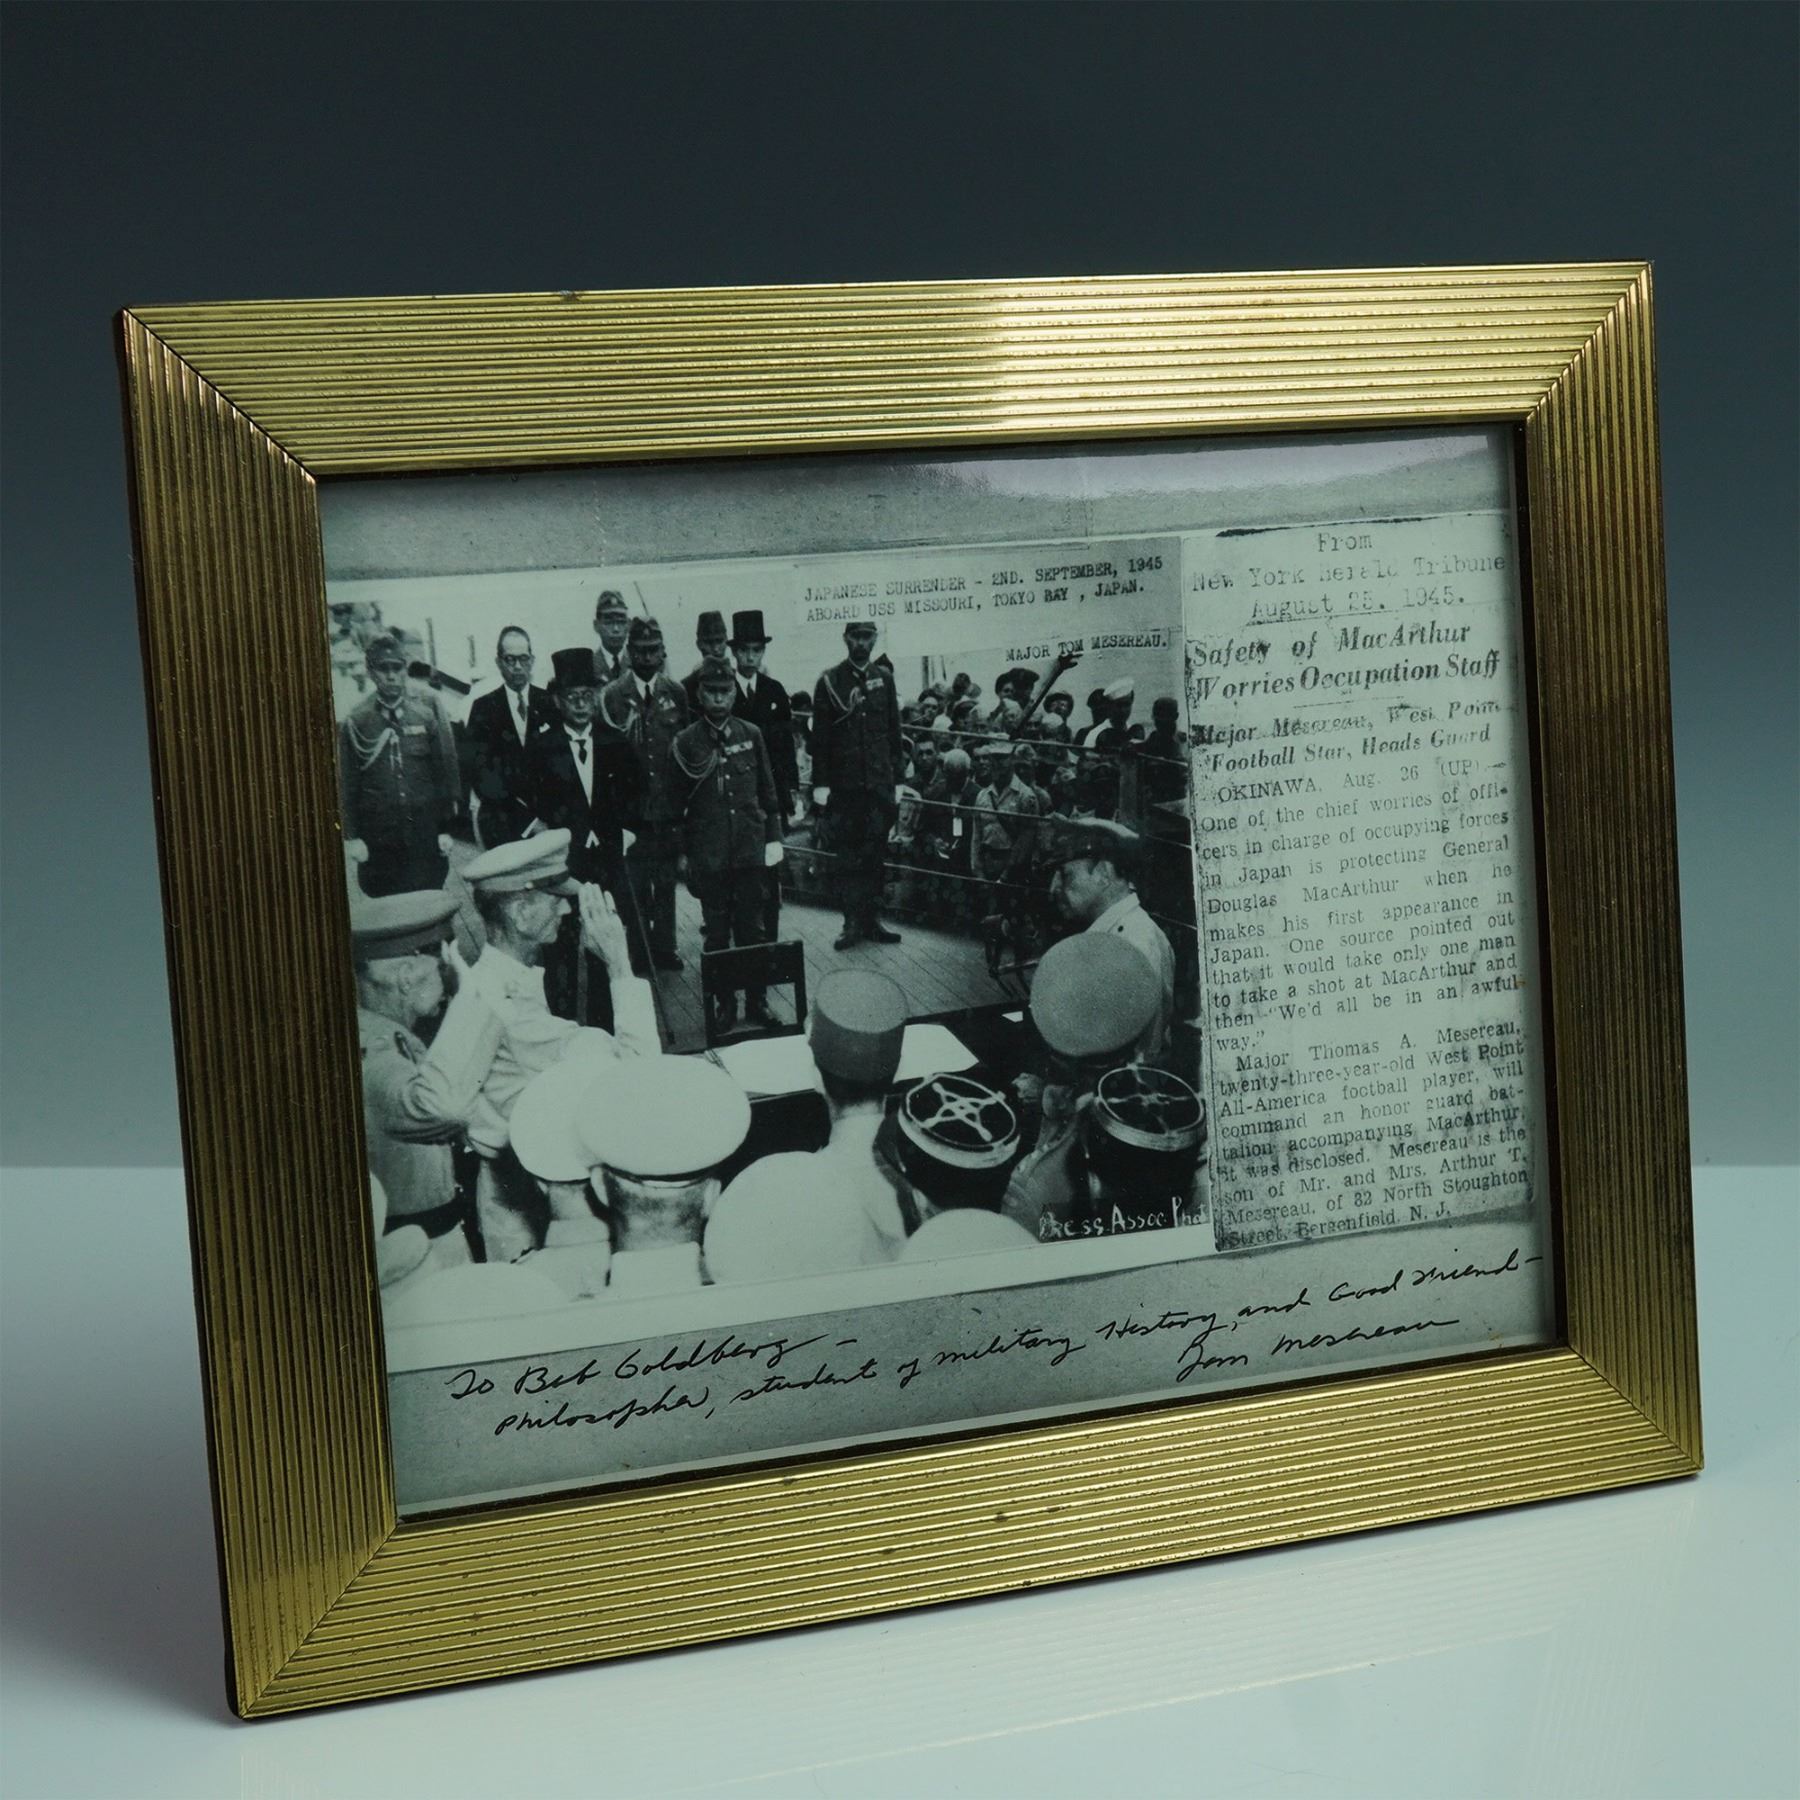 JAPANESE SURRENDER - 2ND. SEPTEMBER, 1945
ABOARD USS MISSOURI, TOKYO BAY , JAPAN.
MAJOR TOM MESEREAU.
Press Assoc. Phot
From
New York herald Tribune
August 25. 1945.
Safety of MacArthur
Worries Occupation Staff
Major Mesereau, West Point
Football Star, Heads Guard
OKINAWA, Aug. 26 (UP).—
One of the chief worries of offi-
cers in charge of occupying forces
in Japan is protecting General
Douglas MacArthur when he
makes his first appearance in
Japan. One source pointed out
that it would take only one man
to take a shot at MacArthur and
then "We'd all be in an awful
way."
Major Thomas A. Mesereau,
twenty-three-year-old West Point
All-America football player, will
command an honor guard bat-
talion accompanying MacArthur,
it was disclosed. Mesereau is the
son of Mr. and Mrs. Arthur T.
Mesereau, of 32 North Stoughton
Street, Bergenfield, N. J.
To Bob Goldberg —
philosopher, student of military History, and Good Friend —
Tom Mesereau